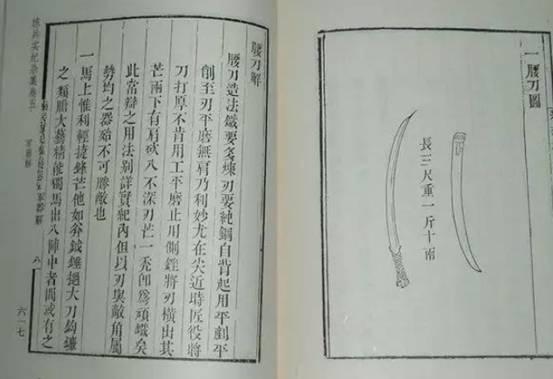 一腰刀圖
長三尺重一斤十兩
腰刀解
腰刀造法鐵要多煉刃要純鋼自背起用平剷平
削至刃平磨無肩乃利妙尤在尖近時匠役將
刀打厚不肯用工平磨止用側銼將刃橫出其
芒兩下有肩砍入不深刃芒一禿即為頑鐵矣
此當辯之用法別詳實紀內但以刃與敵角屬
勢均之器殆不可勝敵也
一馬上惟利輕捷鋒芒他如斧鉞錘撾大刀鉤鐮
之類膽大藝精能獨馬出入陣中者間或有之
練兵實紀雜集卷五
軍器解
八
六一七